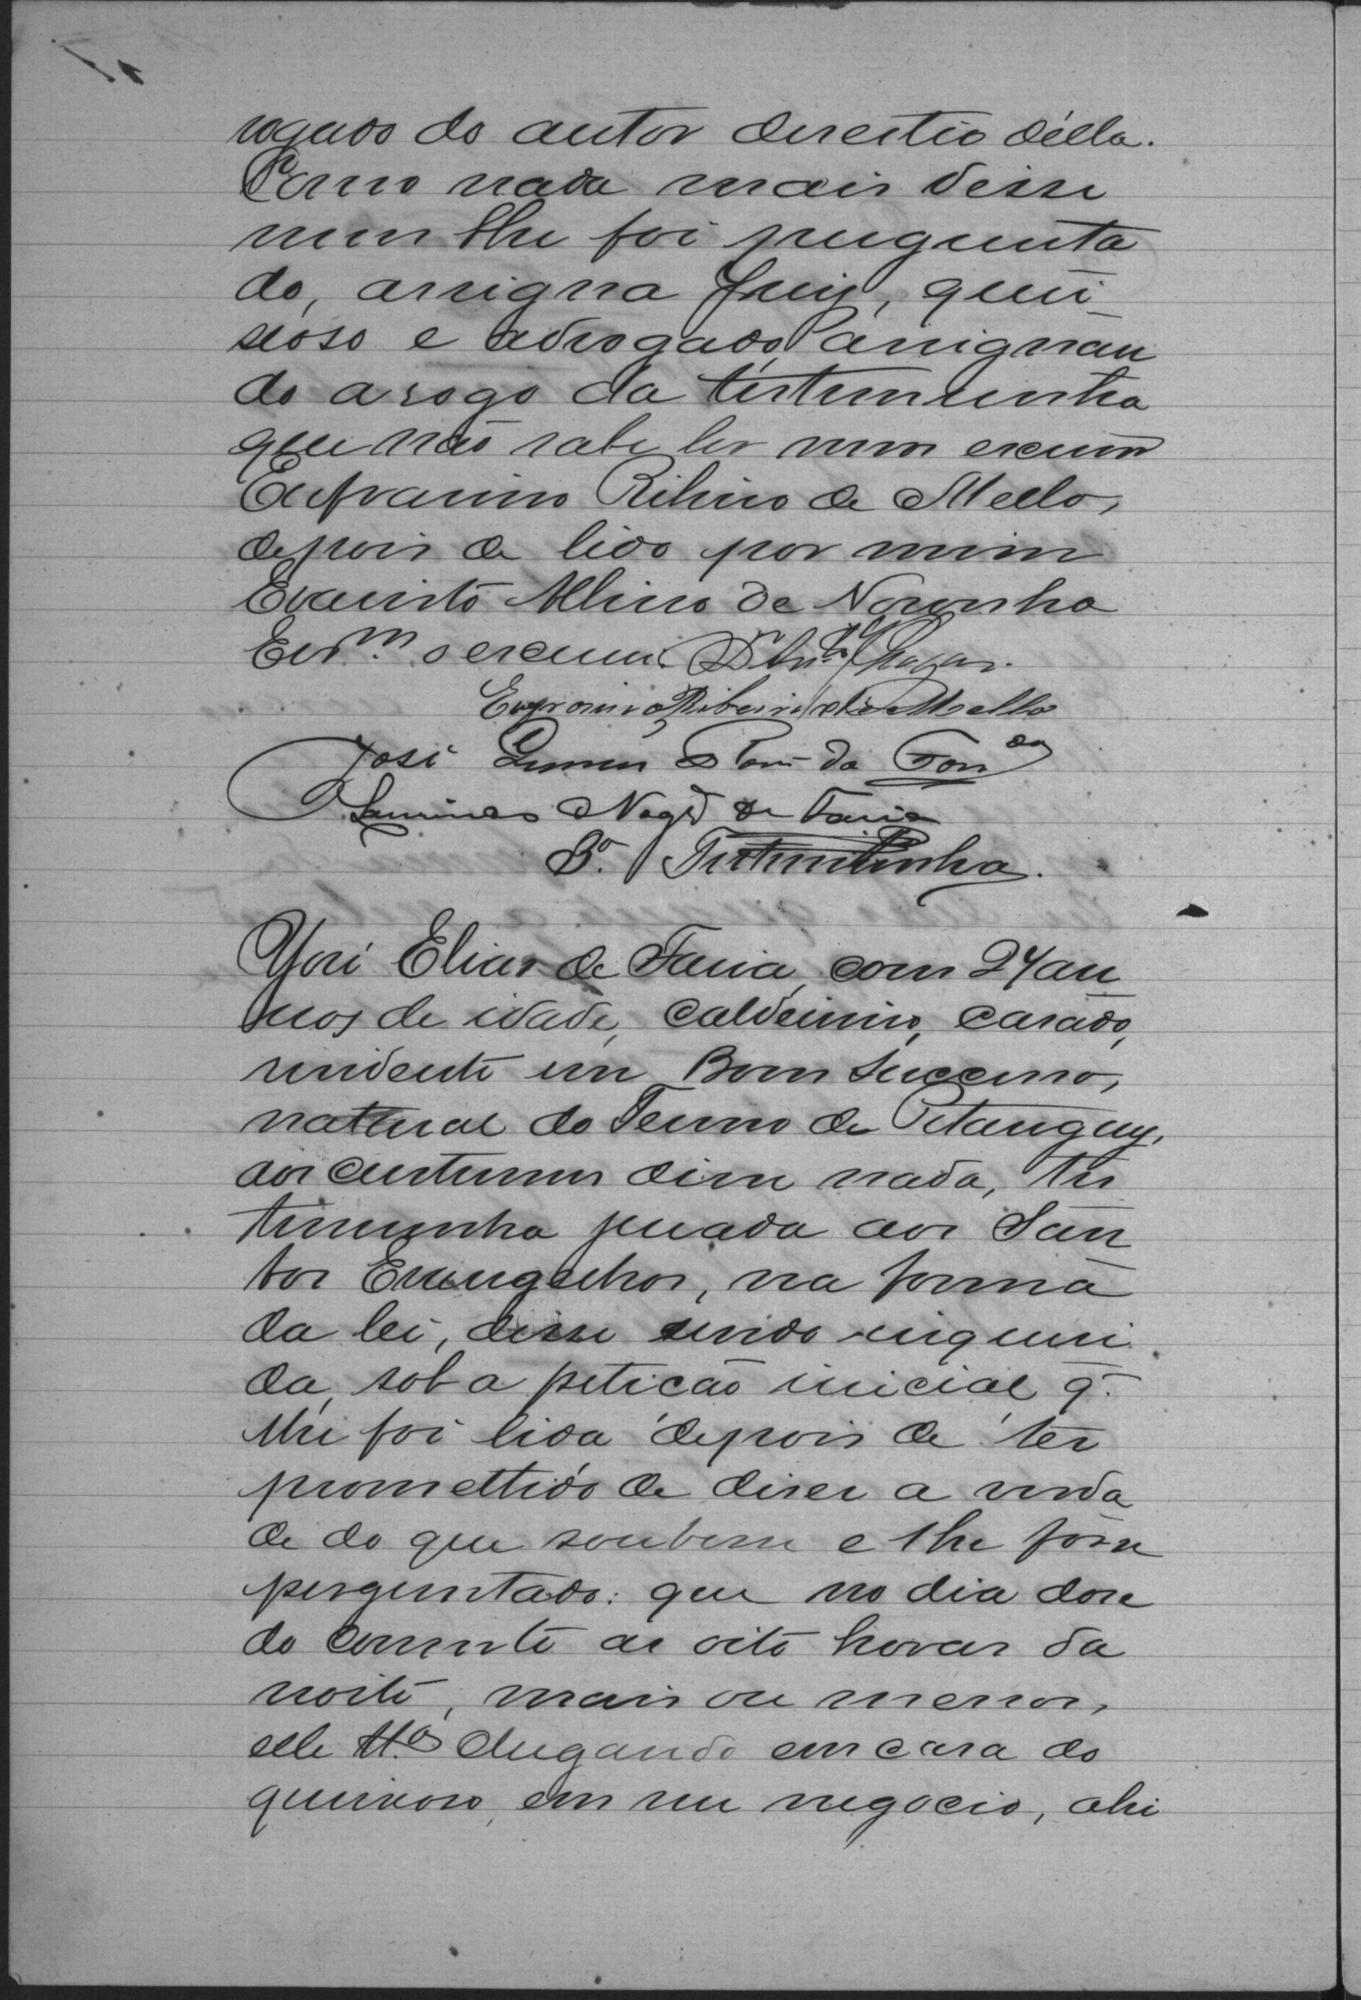 vogado do autor deestio délla.
Como nada mais disse
nem lhe foi pergunta
do, assigna Juiz, quei
xoso e advogado, assignan
do a rogo da testemunha
que não sabe ler nem escrever
Eufrasino Ribeiro de Mello,
depois de lido por mim
Evaristo Albino de Noronha
Esc.m o escrevi.
Eufrosino Ribeiro de Mello
José Gomes da Fon.ca
Nog.ra de Faria
3.a Testemunha.
José Elias de Faria, com 24 an
nos de idade, caldeireiro, casado,
residente em Bom Successo,
natural do Termo de Pitanguy,
aos custumes disse nada, tes
temunha jurada aos San
tos Evangelhos, na forma
da lei, disse sendo inqueri
da, sob a petição inicial q.
lhe foi lida depois de ter
promettido de diser a verda
de do que soubesse e lhe fosse
perguntado: que no dia dose
do corrente as oito horas da
noite, mais ou menos,
elle tt.a chegando em casa do
queixoso, em seu negocio, ahi